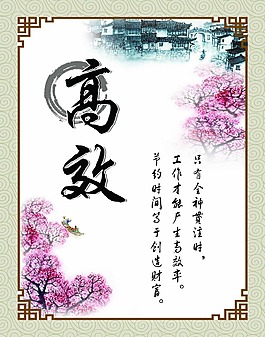 高效
只有全神贯注时，
工作才能产生高效率。
节约时间等于创造财富。